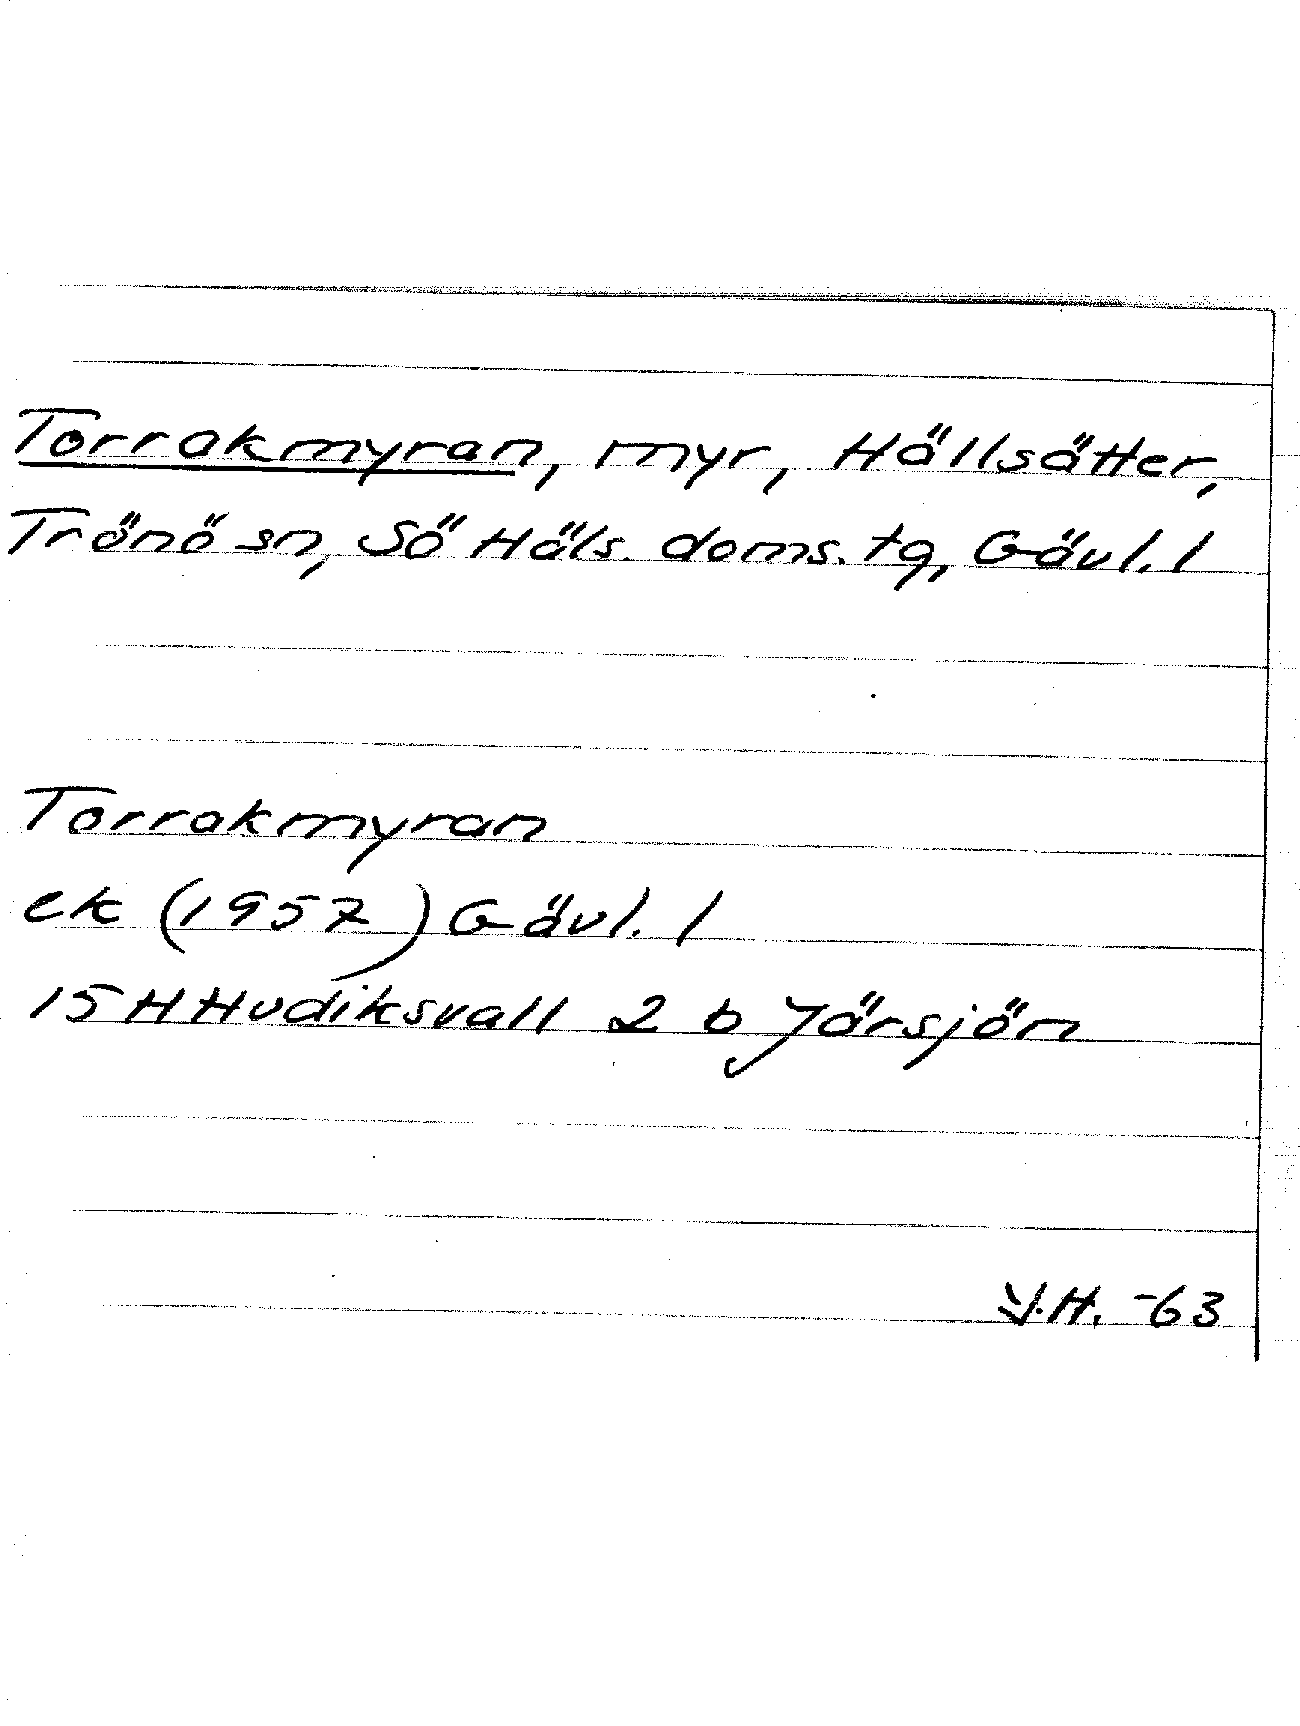 Torrakmyran, myr, Hällsätter,
Trönö sn, Sö Häls. doms. tg, Gävl. l
Torrakmyran
ek (1957) Gävl. l
15 H Hudiksvall 2 b Järsjön
V.H. -63